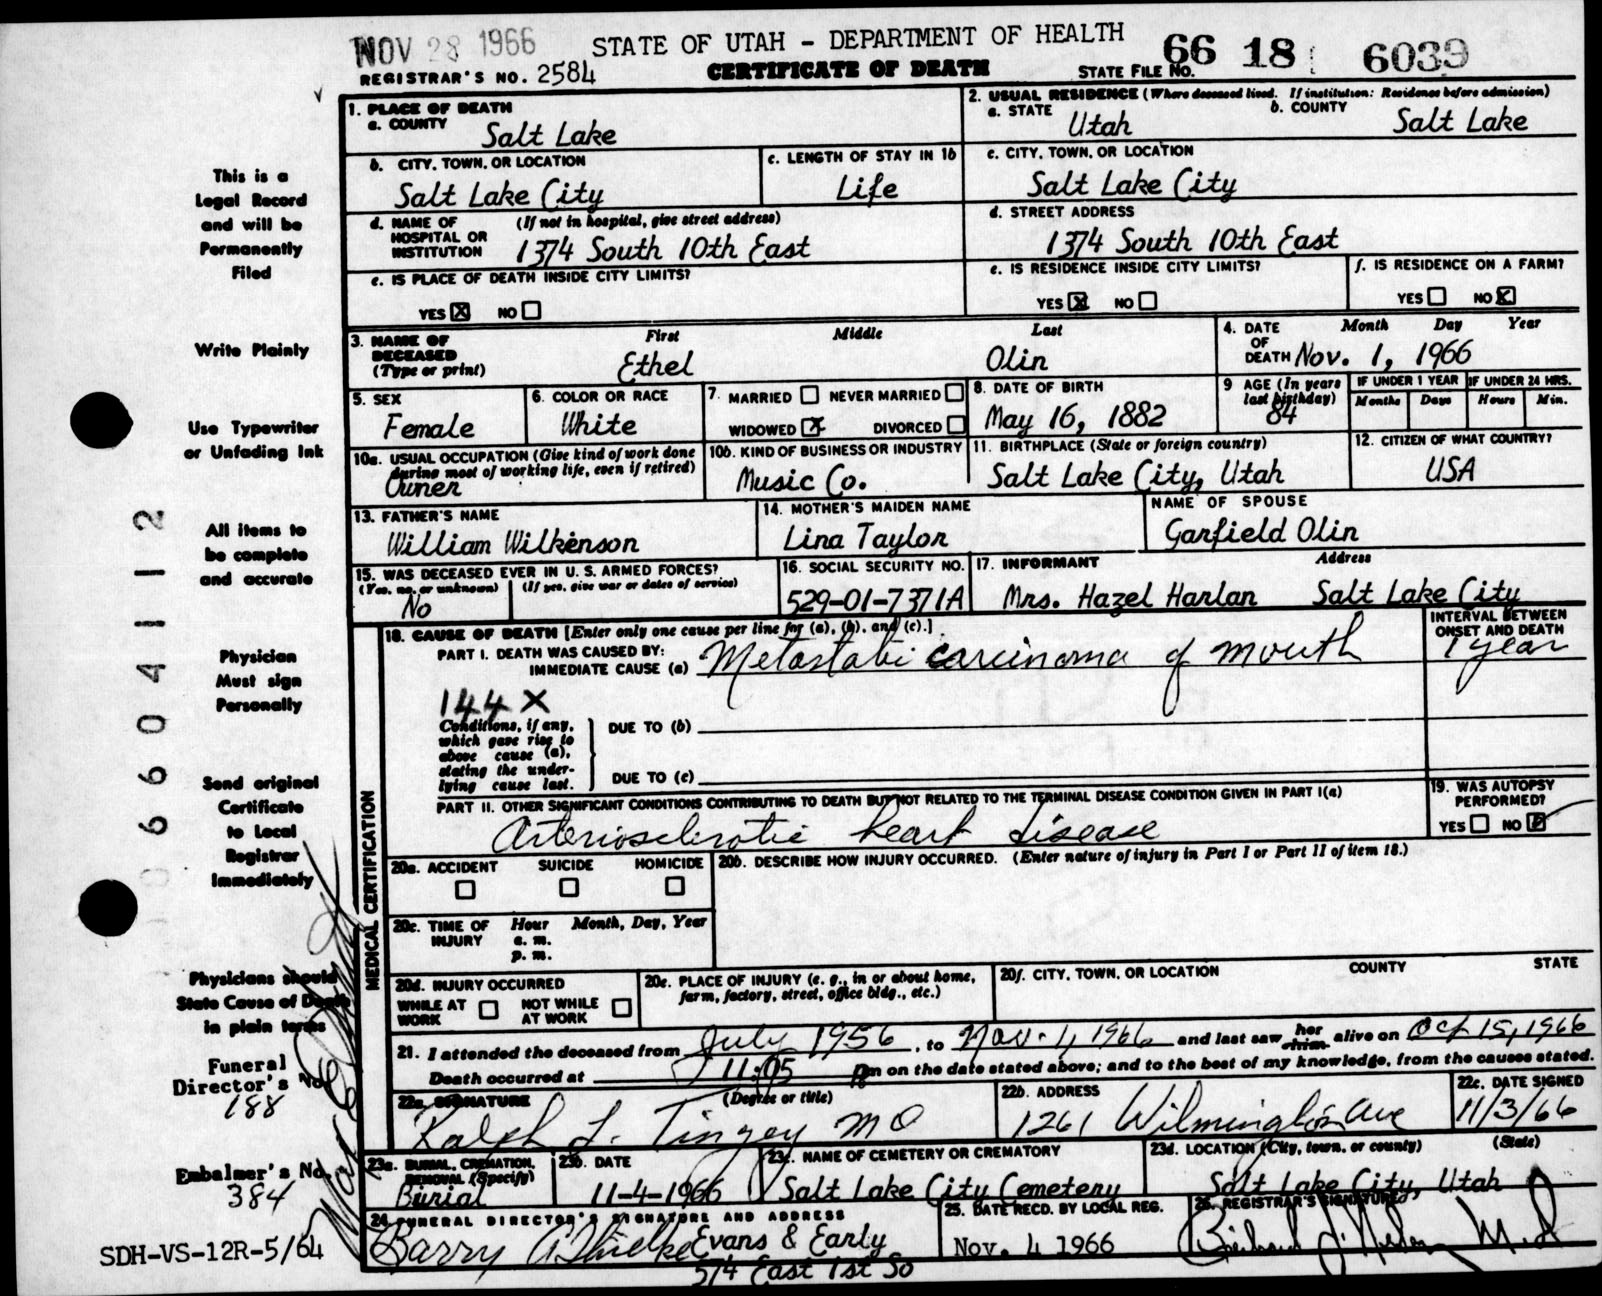 NOV 28 1966 STATE OF UTAH - DEPARTMENT OF HEALTH 66 18 6039
REGISTRAR'S NO. 2584 CERTIFICATE OF DEATH STATE FILE NO.
1. PLACE OF DEATH
a. COUNTY Salt Lake
2. USUAL RESIDENCE (Where deceased lived. If institution: Residence before admission)
a. STATE Utah b. COUNTY Salt Lake
b. CITY, TOWN, OR LOCATION Salt Lake City
c. LENGTH OF STAY IN 1b Life
c. CITY, TOWN, OR LOCATION Salt Lake City
d. NAME OF HOSPITAL OR INSTITUTION (If not in hospital, give street address) 1374 South 10th East
d. STREET ADDRESS 1374 South 10th East
e. IS PLACE OF DEATH INSIDE CITY LIMITS?
YES X NO
e. IS RESIDENCE INSIDE CITY LIMITS?
YES X NO
f. IS RESIDENCE ON A FARM?
YES NO X
3. NAME OF DECEASED (Type or print) First Middle Last
Ethel Olin
4. DATE OF DEATH Month Day Year
Nov. 1, 1966
5. SEX Female
6. COLOR OR RACE White
7. MARRIED NEVER MARRIED
WIDOWED X DIVORCED
8. DATE OF BIRTH May 16, 1882
9 AGE (In years last birthday) 84
IF UNDER 1 YEAR Months Days
IF UNDER 24 HRS. Hours Min.
10a. USUAL OCCUPATION (Give kind of work done during most of working life, even if retired)
Owner
10b. KIND OF BUSINESS OR INDUSTRY Music Co.
11. BIRTHPLACE (State or foreign country) Salt Lake City, Utah
12. CITIZEN OF WHAT COUNTRY? USA
13. FATHER'S NAME William Wilkenson
14. MOTHER'S MAIDEN NAME Lina Taylor
NAME OF SPOUSE Garfield Olin
15. WAS DECEASED EVER IN U. S. ARMED FORCES?
(Yes, no, or unknown) (If yes, give war or dates of service)
No
16. SOCIAL SECURITY NO. 529-01-7371A
17. INFORMANT Address
Mrs. Hazel Harlan Salt Lake City
MEDICAL CERTIFICATION
18. CAUSE OF DEATH [Enter only one cause per line for (a), (b), and (c).]
INTERVAL BETWEEN ONSET AND DEATH
PART I. DEATH WAS CAUSED BY:
IMMEDIATE CAUSE (a) Metastatic carcinoma of mouth 1 year
144 X
Conditions, if any, which gave rise to above cause (a), stating the underlying cause last.
DUE TO (b)
DUE TO (c)
PART II. OTHER SIGNIFICANT CONDITIONS CONTRIBUTING TO DEATH BUT NOT RELATED TO THE TERMINAL DISEASE CONDITION GIVEN IN PART I(a)
Arteriosclerotic heart disease
19. WAS AUTOPSY PERFORMED?
YES NO
20a. ACCIDENT SUICIDE HOMICIDE
20b. DESCRIBE HOW INJURY OCCURRED. (Enter nature of injury in Part I or Part II of item 18.)
20c. TIME OF INJURY Hour Month, Day, Year
a. m.
p. m.
20d. INJURY OCCURRED
WHILE AT WORK NOT WHILE AT WORK
20e. PLACE OF INJURY (e. g., in or about home, farm, factory, street, office bldg., etc.)
20f. CITY, TOWN, OR LOCATION COUNTY STATE
21. I attended the deceased from July 1956, to Nov. 1, 1966 and last saw her him alive on Oct 15, 1966
Death occurred at 11:05 Pm on the date stated above; and to the best of my knowledge, from the causes stated.
22a. SIGNATURE (Degree or title)
Ralph L. Tingey MD
22b. ADDRESS 1261 Wilmington Ave
22c. DATE SIGNED 11/3/66
23a. BURIAL, CREMATION, REMOVAL (Specify) Burial
23b. DATE 11-4-1966
23c. NAME OF CEMETERY OR CREMATORY Salt Lake City Cemetery
23d. LOCATION (City, town, or county) (State)
Salt Lake City, Utah
24. FUNERAL DIRECTOR'S SIGNATURE AND ADDRESS
Barry Evans & Early
574 East 1st So
25. DATE RECD. BY LOCAL REG. Nov. 4 1966
26. REGISTRAR'S SIGNATURE
M.D
This is a
Legal Record
and will be
Permanently
Filed
Write Plainly
Use Typewriter
or Unfading Ink
All items to
be complete
and accurate
Physician
Must sign
Personally
Send original
Certificate
to Local
Registrar
Immediately
Physicians should
State Cause of Death
in plain terms
Funeral
Director's No.
188
Embalmer's No.
384
SDH-VS-12R-5/64
06604112